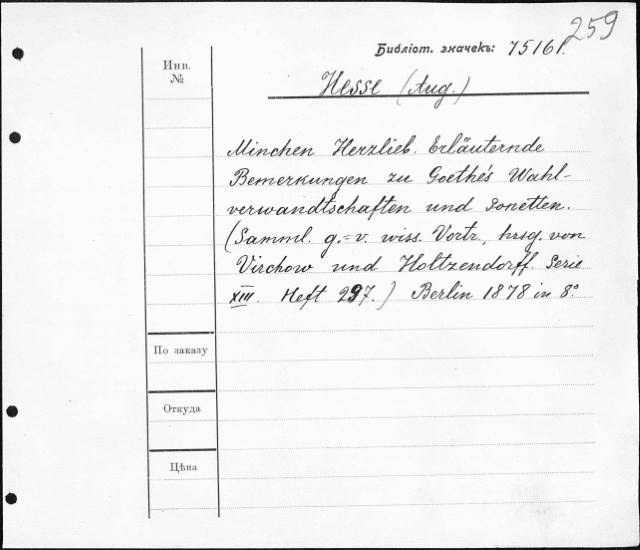 259
Библіот. значекъ: 75161.
Инв.
№
Hesse (Aug.)
Minchen Herzlieb. Erläuternde
Bemerkungen zu Goethe's Wahl-
verwandtschaften und Sonetten.
(Samml. g.=v. wiss. Vortr., hrsg. von
Virchow und Holtzendorff. Serie
XIII. Heft 297.) Berlin 1878 in 8°.
По заказу
Откуда
Цѣна